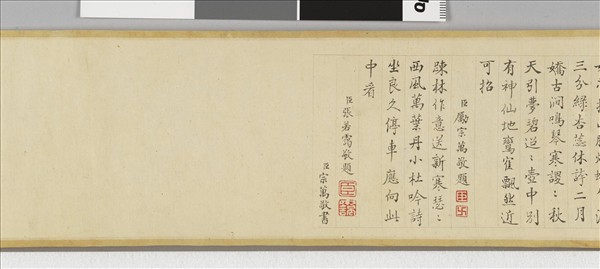 三分綠杏蕊休誇二月
嬌古澗鳴琴寒謖〻秋
天引夢碧迢〻壺中別
有神仙地鸞崔飄然近
可招
臣勵宗萬敬題
踈林作意送新寒瑟〻
西風萬葉丹小杜吟詩
坐良久停車應向此
中看
臣張若靄敬題
臣宗萬敬書